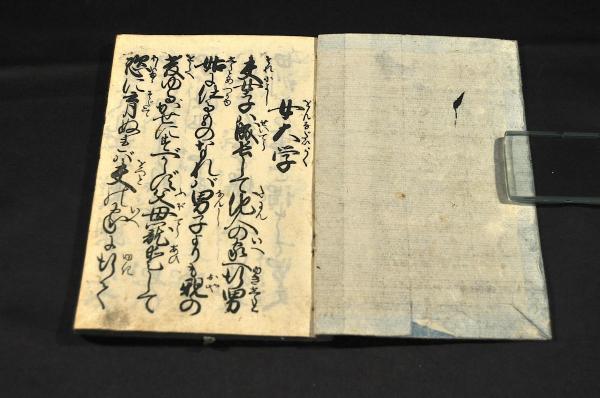 女大学
夫女子ハ成長して他人の家へ行舅
姑に仕るものなれバ男子よりも親の
教ゆるがせにすべからず父母寵愛して
恣に育ぬれバ夫の家に行て